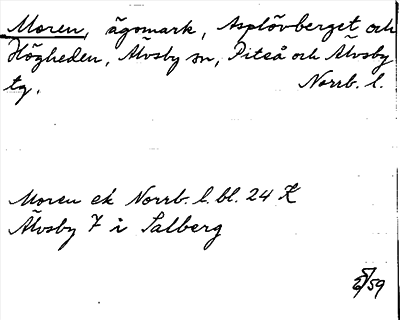 Moren, ägomark, Asplövberget och
Högheden, Älvsby sn, Piteå och Älvsby
tg. Norrb. l.
Moren ek Norrb. l. bl. 24 K
Älvsby 7 i Salberg
59